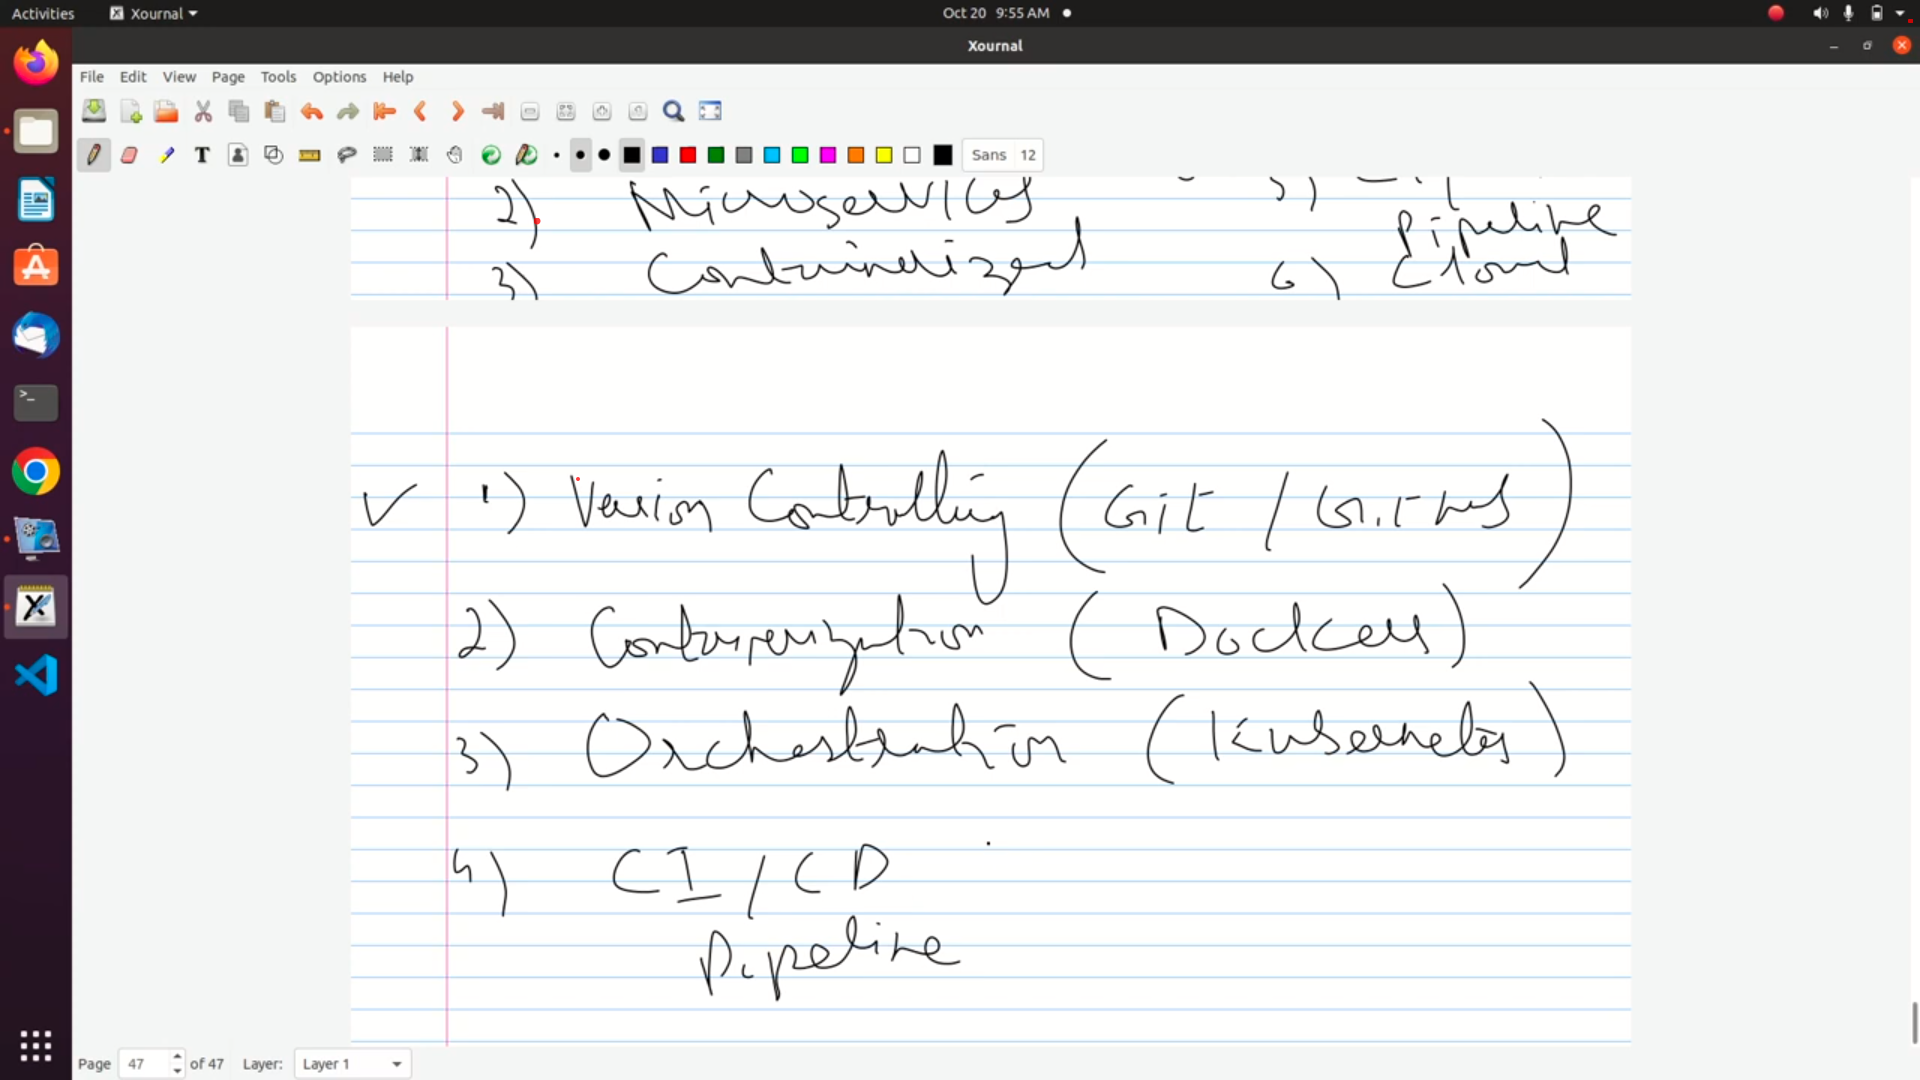 Activities Xournal Oct 20 9:55 AM
Xournal
File Edit View Page Tools Options Help
Sans 12
2) Microservices 5)
Pipeline
3) Containerized 6) Cloud
1) Version Controlling (Git / Github)
2) Containerization (Docker)
3) Orchestration (Kubernetes)
4) CI / CD
Pipeline
Page 47 of 47 Layer: Layer 1